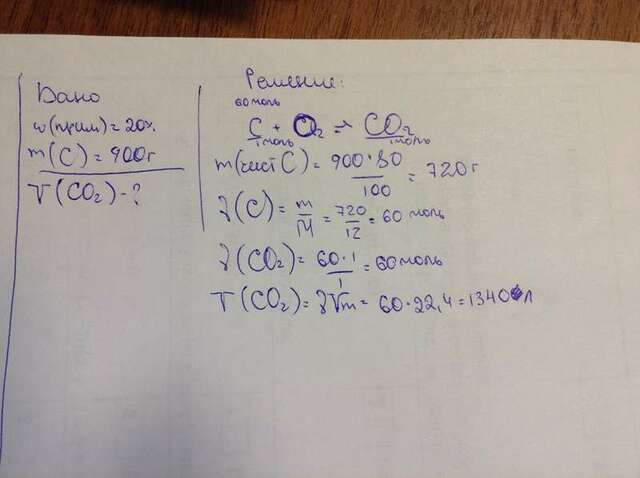 Дано
w(прим)=20%
m(C)=900г
V(CO₂)-?
Решение:
60моль
C + O₂ => CO₂
1моль 1моль
m(чист C) = 900·80/100 = 720г
ν(C) = m/M = 720/12 = 60 моль
ν(CO₂) = 60·1/1 = 60моль
V(CO₂) = νVm = 60·22,4 = 1340л